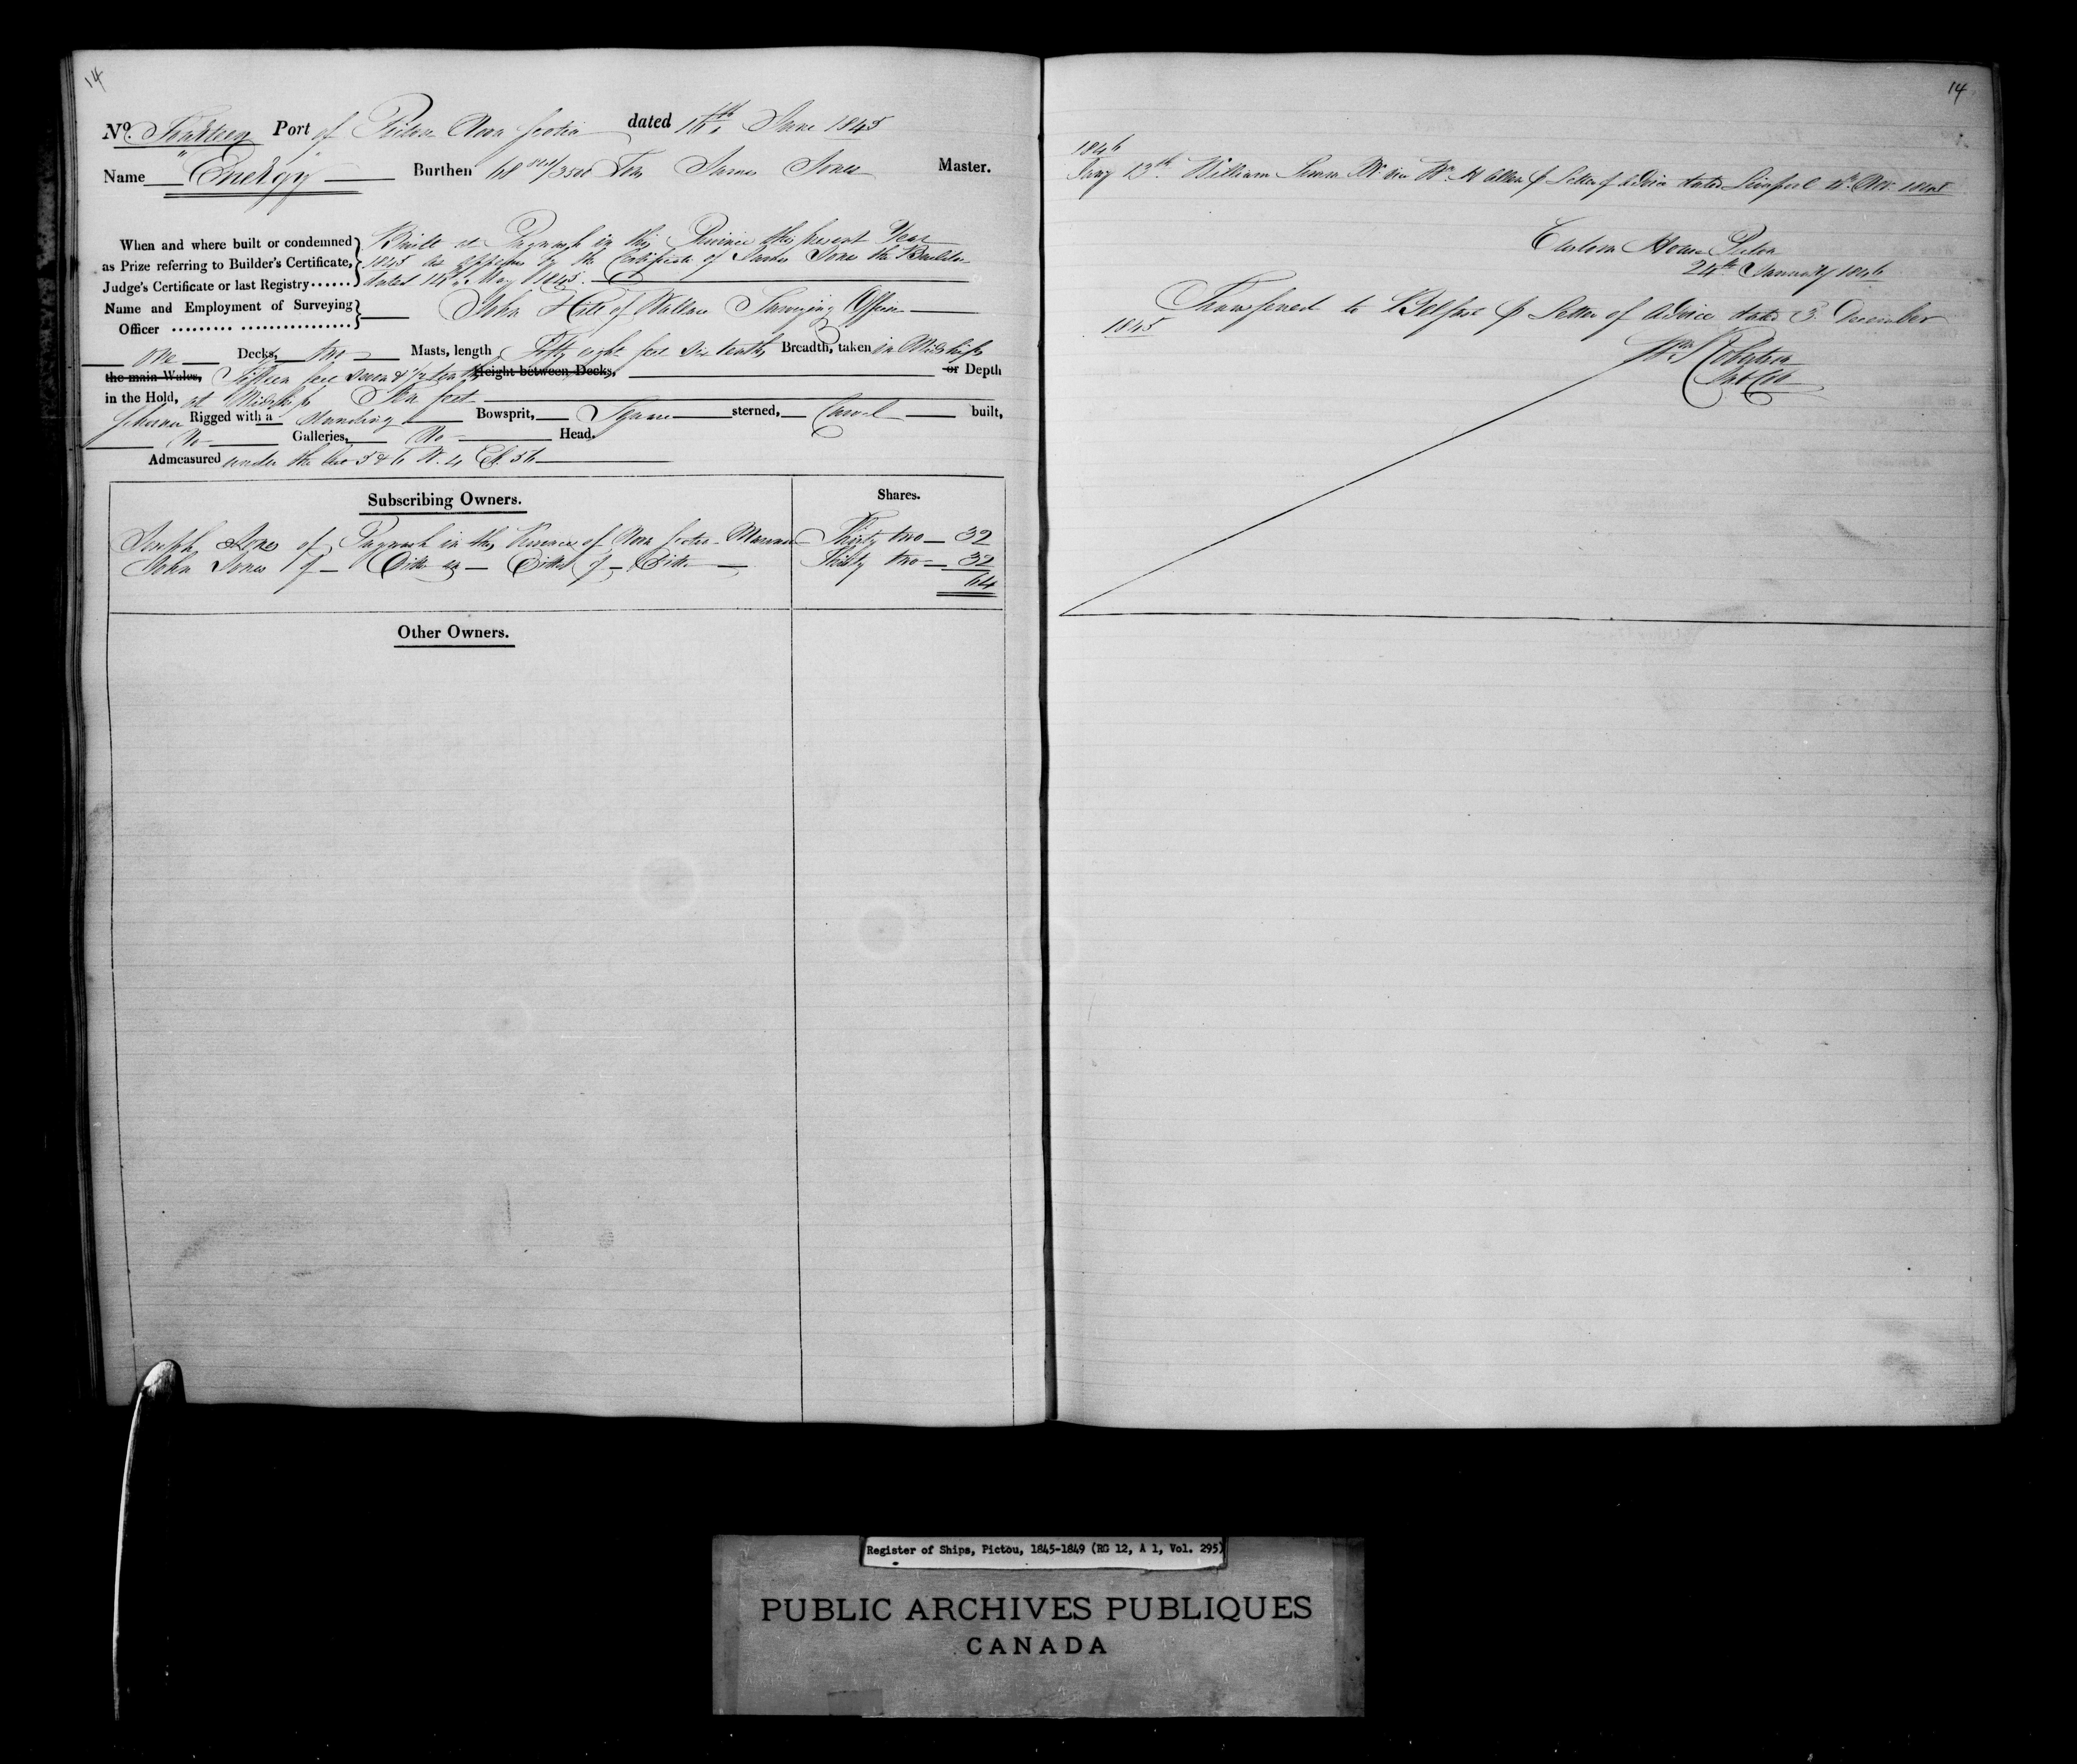 14
No. Fourteen Port of Pictou Nova Scotia dated 16th June 1845
Name "Energy" Burthen 68 /3500 Tons James Jones Master.
When and where built or condemned as Prize referring to Builder's Certificate, Judge's Certificate or last Registry......
Built at Pugwash in this Province this present Year
1845 as appears by the Certificate of James Jones the Builder
dated 14th May 1845.
Name and Employment of Surveying Officer
John Hill of Wallace Surveying Officer
One Decks, two Masts, length Fifty eight feet six tenths Breadth, taken in Midships
the main Wales, Fifteen feet seven & 1/2 tenths Height between Decks, or Depth
in the Hold, at Midships Ten feet
Schooner Rigged with a standing Bowsprit, Square sterned, Carvel built,
No Galleries, No Head.
Admeasured under the Act 5 & 6 W. 4 Ch. 56
Subscribing Owners. Shares.
Joseph Jones of Pugwash in the Province of Nova Scotia Mariner Thirty two 32
John Jones of Ditto in Ditto of Ditto Thirty two 32
64
Other Owners.
14
1846
Jany 13th. William Mr. vice Wm. H Allen p Letter of Advice dated Liverpool Nov. 1845
Custom House Pictou
24th January 1846
Transferred to Belfast p Letter of Advice dated 3 December
1845
Robertson
Sub Col
Register of Ships, Pictou, 1845-1849 (RG 12, A 1, Vol. 295)
PUBLIC ARCHIVES PUBLIQUES
CANADA